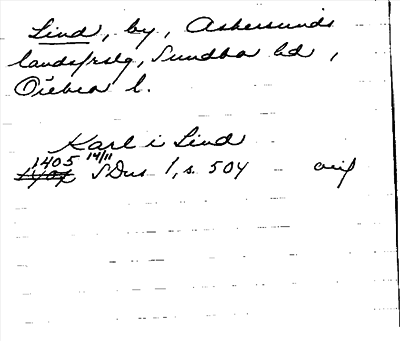 Lind, by, Askersunds
landsfrslg, Sundbo hd,
Örebro l.
Karl i Lind
1405 14/11 SDns 1, s. 504 orig